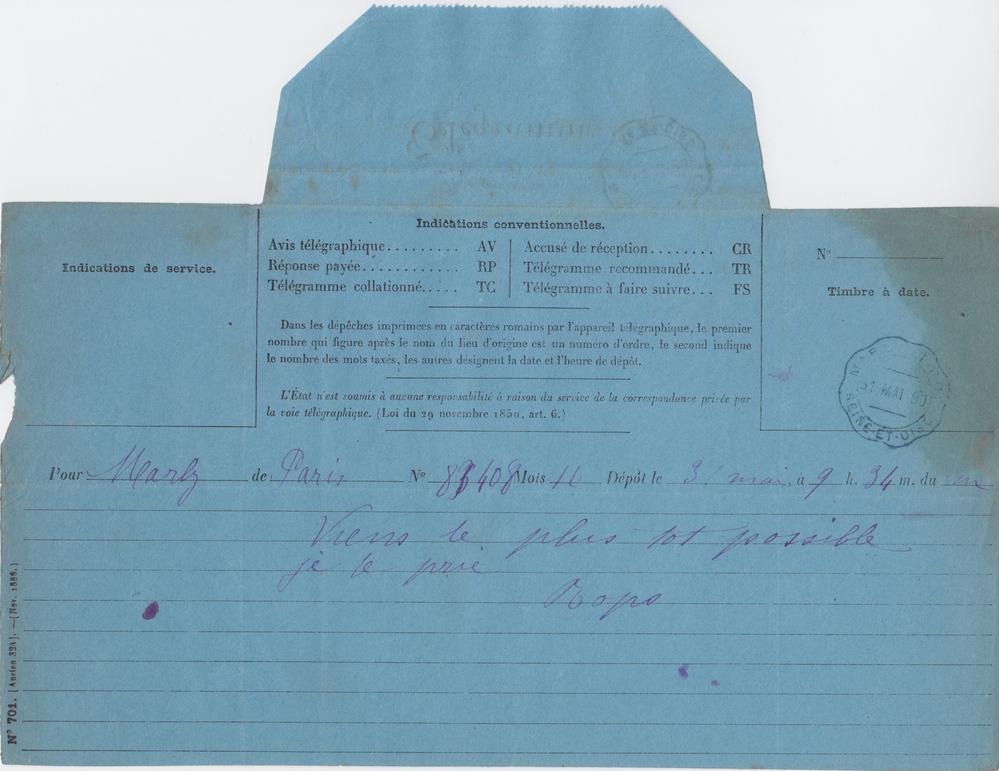 Télégramme
Indications conventionnelles.
Avis télégraphique......... AV
Réponse payée............ RP
Télégramme collationné..... TC
Accusé de réception........ CR
Télégramme recommandé... TR
Télégramme à faire suivre... FS
Indications de service.
N°
Timbre à date.
Dans les dépêches imprimées en caractères romains par l'appareil télégraphique, le premier
nombre qui figure après le nom du lieu d'origine est un numéro d'ordre, le second indique
le nombre des mots taxés, les autres désignent la date et l'heure de dépôt.
L'État n'est soumis à aucune responsabilité à raison du service de la correspondance privée par
la voie télégraphique. (Loi du 29 novembre 1850, art. 6.)
31 MAI 90
SEINE-ET-OISE
Pour Marly de Paris N° Mots 11 Dépôt le 31 mai à 9 h. 34 m. du m
Viens le plus tot possible
je te prie
Rops
N° 701. (Ancien 324). — (Nov. 1886.)